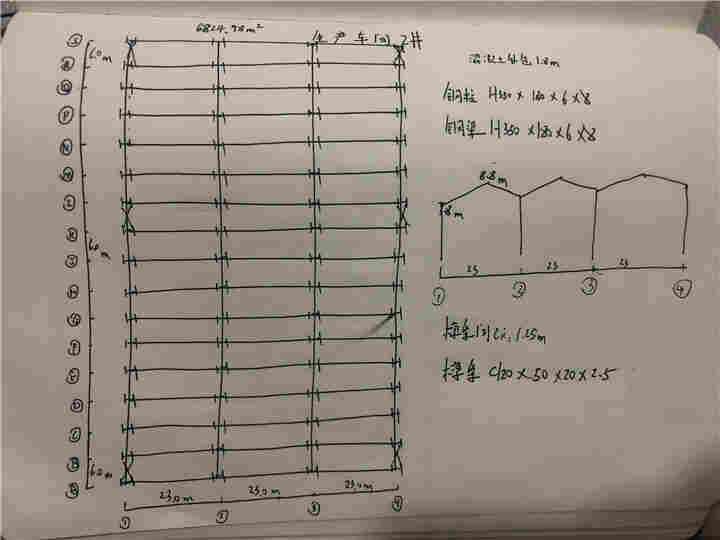 6824.98m²
生产车间2#
混凝土外包1.8m
钢柱 H350×180×6×8
钢梁 H350×180×6×8
8.8m
8m
23 23 23
① ② ③ ④
檩条间距1.25m
檩条 C120×50×20×2.5
6.0m
6.0m
6.0m
S
R
Q
P
N
M
L
K
J
H
G
F
E
D
C
B
23.0m 23.0m 23.0m
① ② ③ ④